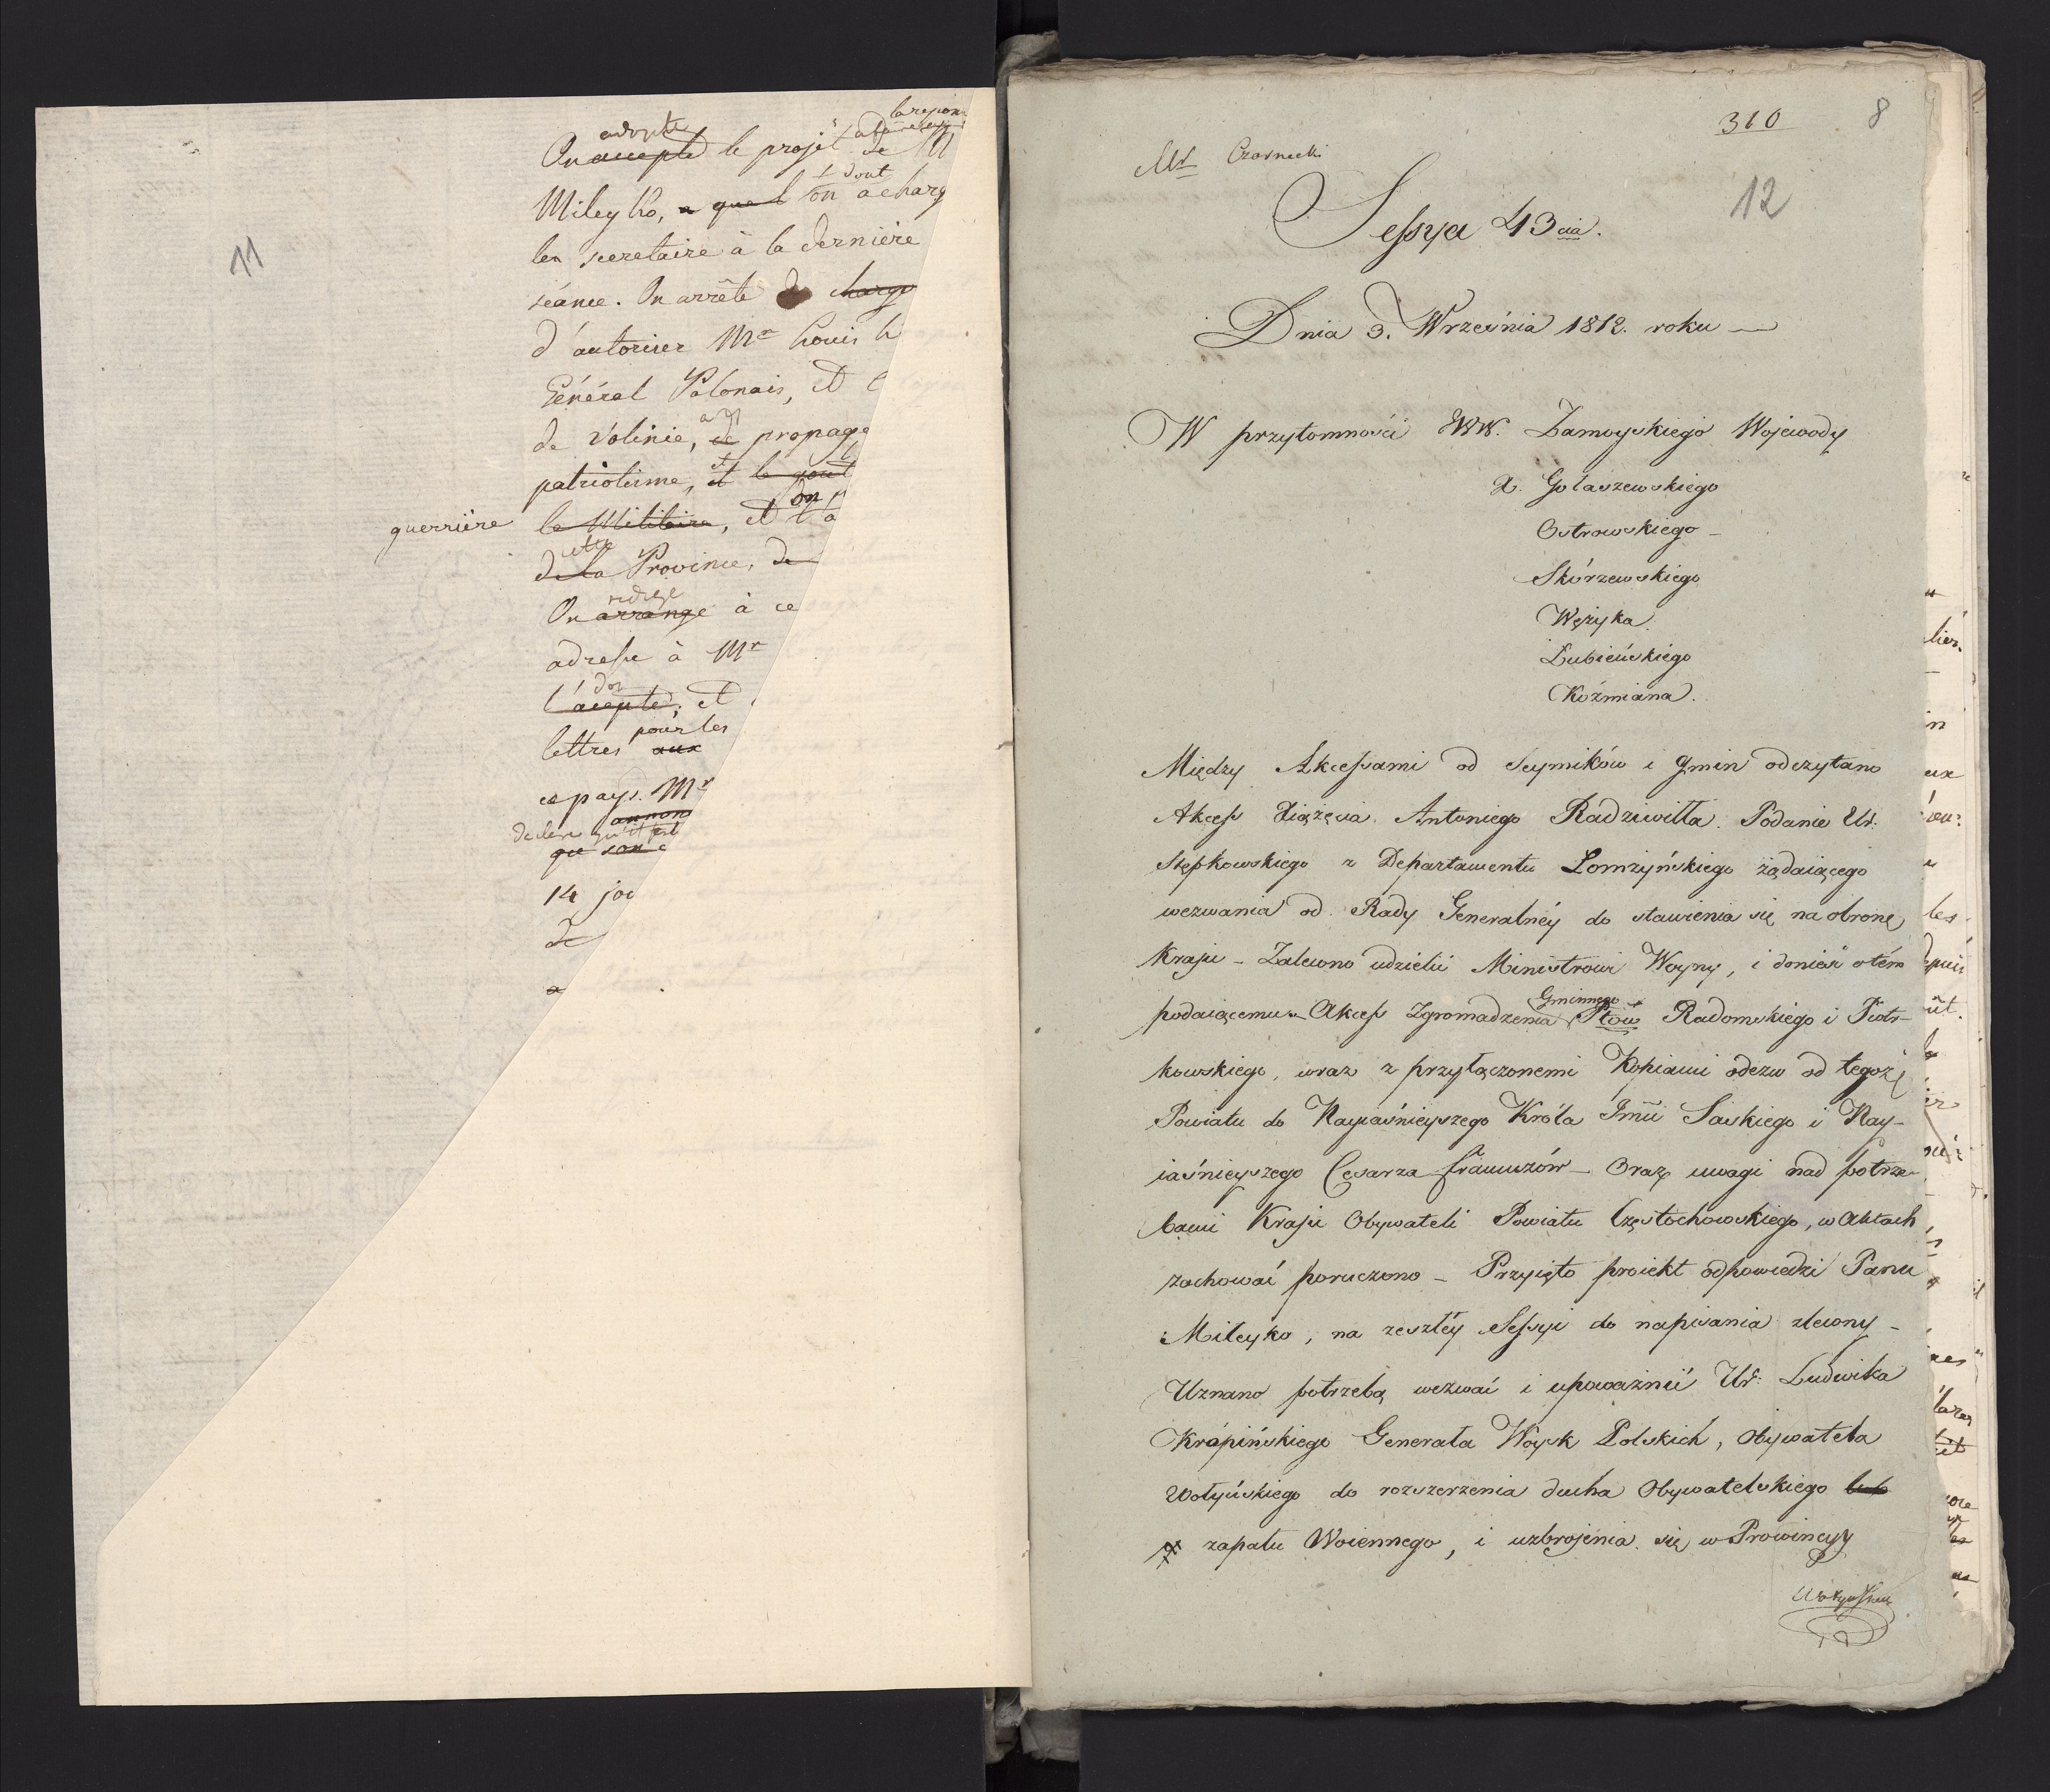 11
adopté la repon
On accepté le projét de M
+ dont
Mileyko, a quel on à charg
les secretaire à la dernière
séance. On arrête de charge
d'autoriser Mr Louis
Général Polonais, et
de Volinie, de propage
et
patriotisme, et le gout
on
guerrière le Militaire, et l'a
cette
de la Province, de
redige
On arrange à ce
adresse à Mr
l'acepte, et
pour les
lettres aux
ce pays. Mr
annon
declare qu'il est
que son
14 jou
de
a
310 8
Mr Czarnecki
12
Sessya 43cia.
Dnia 3. Września 1812. roku —
W przytomności WW. Zamoyskiego Wojewody
X. Gołaszewskiego
Ostrowskiego –
Skórzewskiego
Wężyka
Łubieńskiego
Koźmiana.
Między Akcessami od Seymików i gmin odczytano
Akcess Xiążęcia Antoniego Radziwiłła. Podanie Ur.
Stępkowskiego z Departamentu Łomżyńskiego żądaiącego
wezwania od Rady Generalnéy do stawienia się na obronę
Kraju – Zalecono udzielić Ministrowi Woyny, i donieść o tém
Gminnego
podaiącemu – Akcess Zgromadzenia Ptów Radomskiego i Piotr-
kowskiego, wraz z przyłączonemi Kopiami odezw od tegoż
Powiatu do Nayiaśnieyszego Króla Jmci Saskiego i Nay-
iaśnieyszego Cesarza francuzów – Oraz uwagi nad potrze-
bami Kraju Obywateli Powiatu Częstochowskiego, w Aktach
zachować poruczono – Przyięto proiekt odpowiedzi Panu
Mileyko, na zeszłéy Sessyi do napisania zlecony –
Uznano potrzebą wezwać i upoważnić Ur: Ludwika
Kropińskiego Generała Woysk Polskich, Obywatela
Wołyńskiego do rozszerzenia ducha Obywatelskiego lub
zapału Woiennego, i uzbrojenia się w Prowincyy
Wołyńskiey